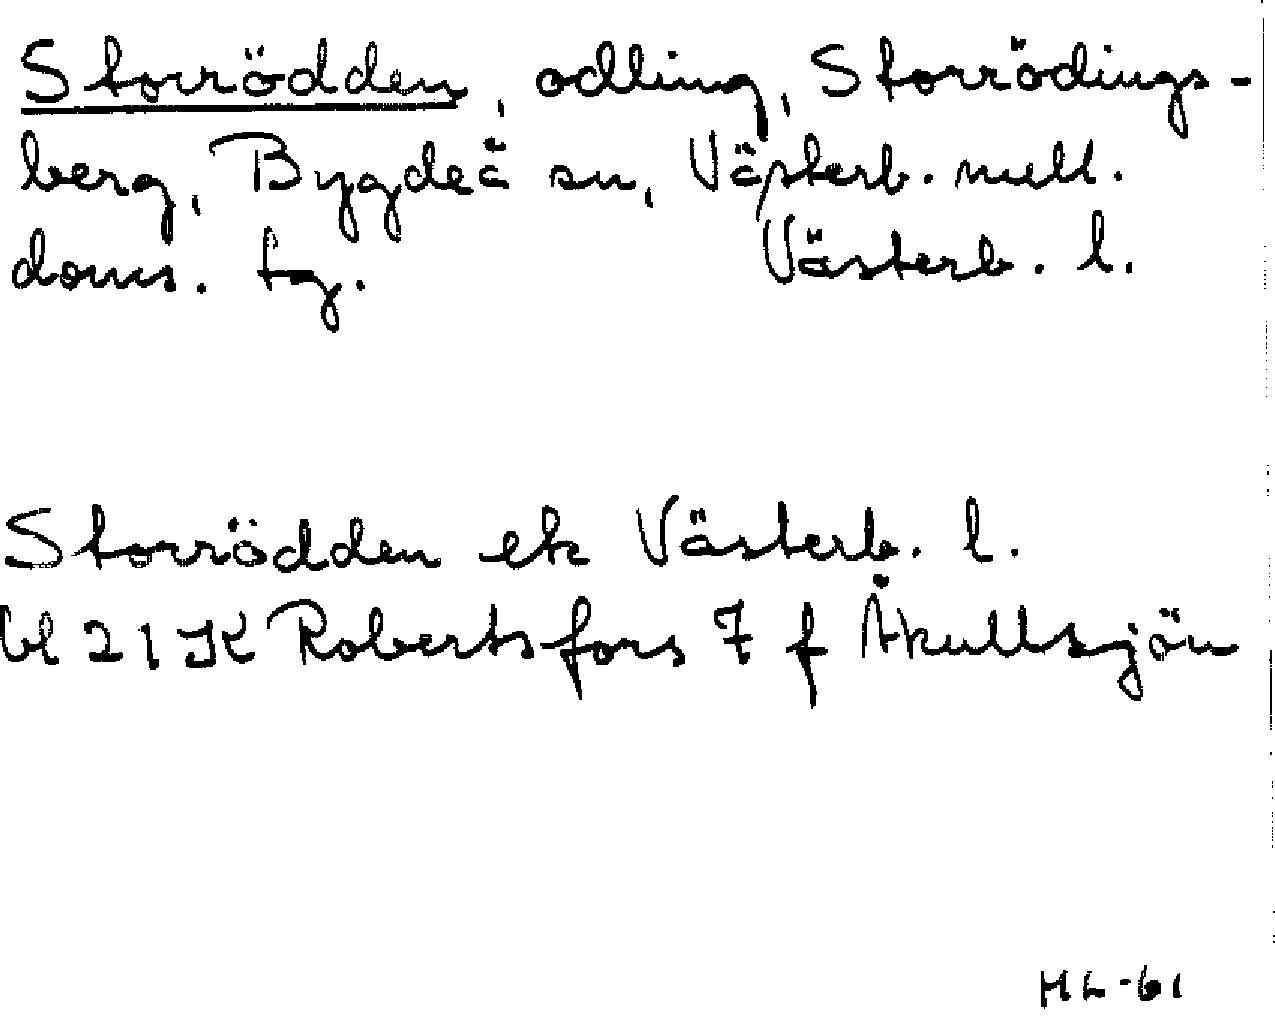 Storrödden, odling, Storrödings-
berg, Bygdeå sn, Västerb. mell.
doms. tg. Västerb. l.
Storrödden ek Västerb. l.
bl 21 K Robertsfors 7 f Åkullsjön
HL-61